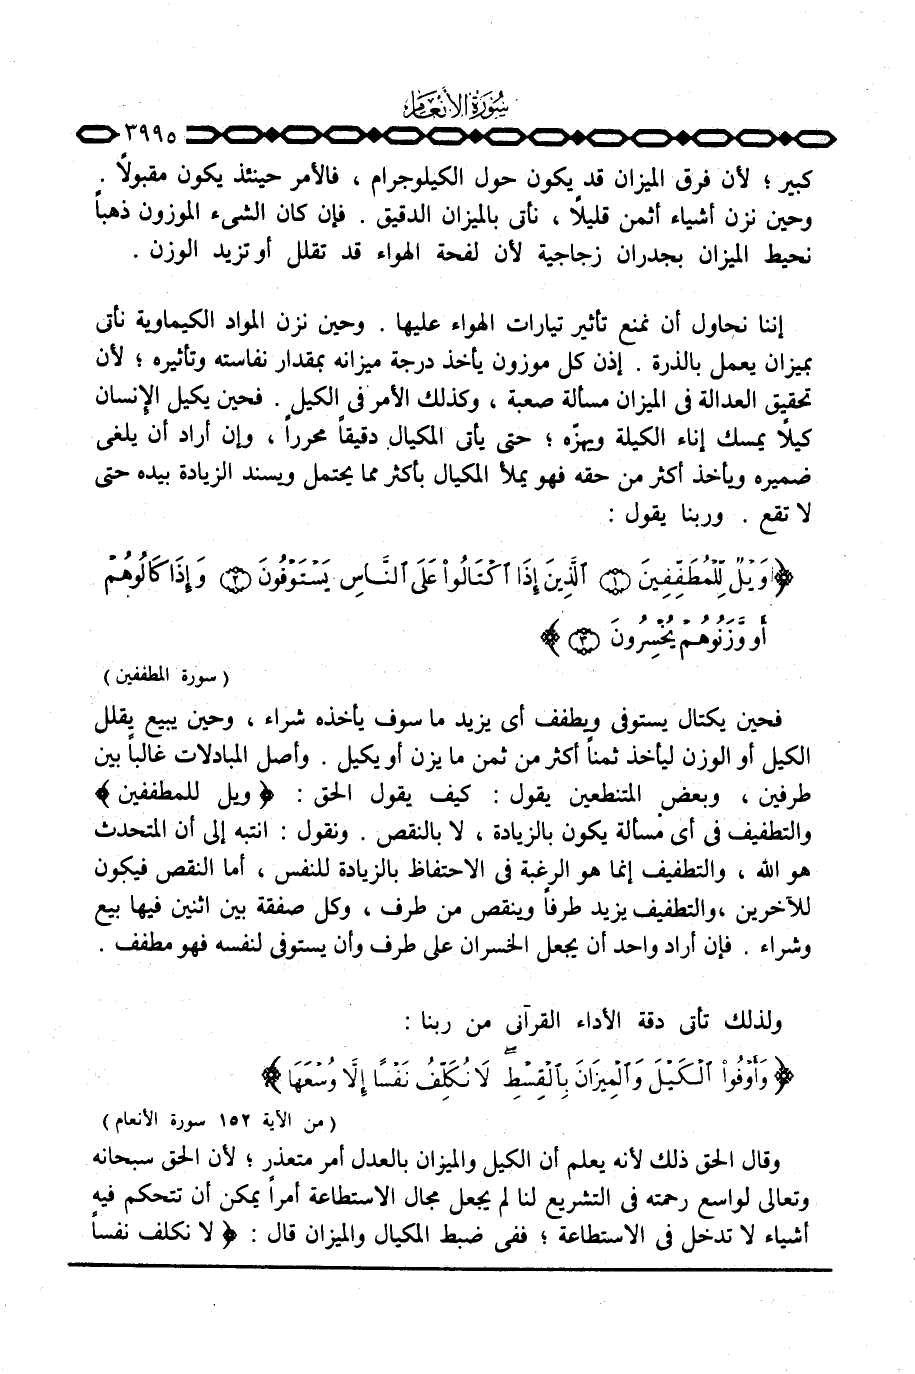 سُورَةُ الأَنْعَامِ
٣٩٩٥
كبير ؛ لأن فرق الميزان قد يكون حول الكيلوجرام ، فالأمر حينئذ يكون مقبولاً .
وحين نزن أشياء أثمن قليلاً ، نأتى بالميزان الدقيق . فإن كان الشىء الموزون ذهباً
نحيط الميزان بجدران زجاجية لأن لفحة الهواء قد تقلل أو تزيد الوزن .
إننا نحاول أن نمنع تأثير تيارات الهواء عليها . وحين نزن المواد الكيماوية نأتى
بميزان يعمل بالذرة . إذن كل موزون يأخذ درجة ميزانه بمقدار نفاسته وتأثيره ؛ لأن
تحقيق العدالة فى الميزان مسألة صعبة ، وكذلك الأمر فى الكيل . فحين يكيل الإنسان
كيلاً يمسك إناء الكيلة ويهزّه ؛ حتى يأتى المكيال دقيقاً محرراً ، وإن أراد أن يلغى
ضميره ويأخذ أكثر من حقه فهو يملأ المكيال بأكثر مما يحتمل ويسند الزيادة بيده حتى
لا تقع . وربنا يقول :
﴿ وَيْلٌ لِّلْمُطَفِّفِينَ ۝١ ٱلَّذِينَ إِذَا ٱكْتَالُوا۟ عَلَى ٱلنَّاسِ يَسْتَوْفُونَ ۝٢ وَإِذَا كَالُوهُمْ
أَو وَّزَنُوهُمْ يُخْسِرُونَ ۝٣ ﴾
( سورة المطففين )
فحين يكتال يستوفى ويطفف أى يزيد ما سوف يأخذه شراء ، وحين يبيع يقلل
الكيل أو الوزن ليأخذ ثمناً أكثر من ثمن ما يزن أو يكيل . وأصل المبادلات غالباً بين
طرفين ، وبعض المتنطعين يقول : كيف يقول الحق : ﴿ ويل للمطففين ﴾
والتطفيف فى أى مسألة يكون بالزيادة ، لا بالنقص . ونقول : انتبه إلى أن المتحدث
هو الله ، والتطفيف إنما هو الرغبة فى الاحتفاظ بالزيادة للنفس ، أما النقص فيكون
للآخرين ،والتطفيف يزيد طرفاً وينقص من طرف ، وكل صفقة بين اثنين فيها بيع
وشراء . فإن أراد واحد أن يجعل الخسران على طرف وأن يستوفى لنفسه فهو مطفف .
ولذلك تأتى دقة الأداء القرآنى من ربنا :
﴿ وَأَوْفُوا۟ ٱلْكَيْلَ وَٱلْمِيزَانَ بِٱلْقِسْطِ ۖ لَا نُكَلِّفُ نَفْسًا إِلَّا وُسْعَهَا ﴾
( من الآية ١٥٢ سورة الأنعام )
وقال الحق ذلك لأنه يعلم أن الكيل والميزان بالعدل أمر متعذر ؛ لأن الحق سبحانه
وتعالى لواسع رحمته فى التشريع لنا لم يجعل مجال الاستطاعة أمراً يمكن أن تتحكم فيه
أشياء لا تدخل فى الاستطاعة ؛ ففى ضبط المكيال والميزان قال : ﴿ لا نكلف نفساً